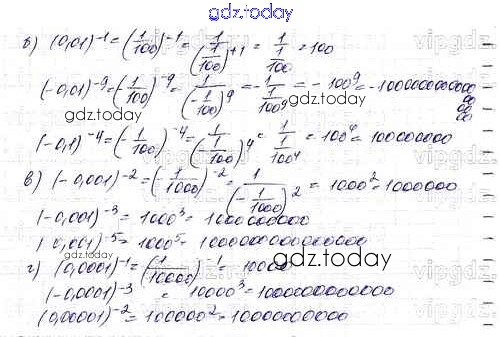 gdz.today
б) (0,01)^-1 = (1/100)^-1 = 1/(1/100)^+1 = 1/(1/100) = 100
(-0,01)^-9 = (-1/100)^-9 = 1/(-1/100)^9 = -1/(1/100^9) = -100^9 = -1000000000000
00
00
00
gdz.today
(-0,1)^-4 = (-1/100)^-4 = 1/(-1/100)^4 = 1/(1/100^4) = 100^4 = 100000000
в) (-0,001)^-2 = (-1/1000)^-2 = 1/(-1/1000)^2 = 1000^2 = 1000000
(-0,001)^-3 = 1000^3 = 1000000000
(0,001)^-5 = 1000^5 = 1000000000000000
gdz.today
г) (0,0001)^-1 = (1/10000)^-1 = 10000
(-0,0001)^-3 = 10000^3 = 1000000000000
(0,00001)^-2 = 100000^2 = 10000000000
gdz.today